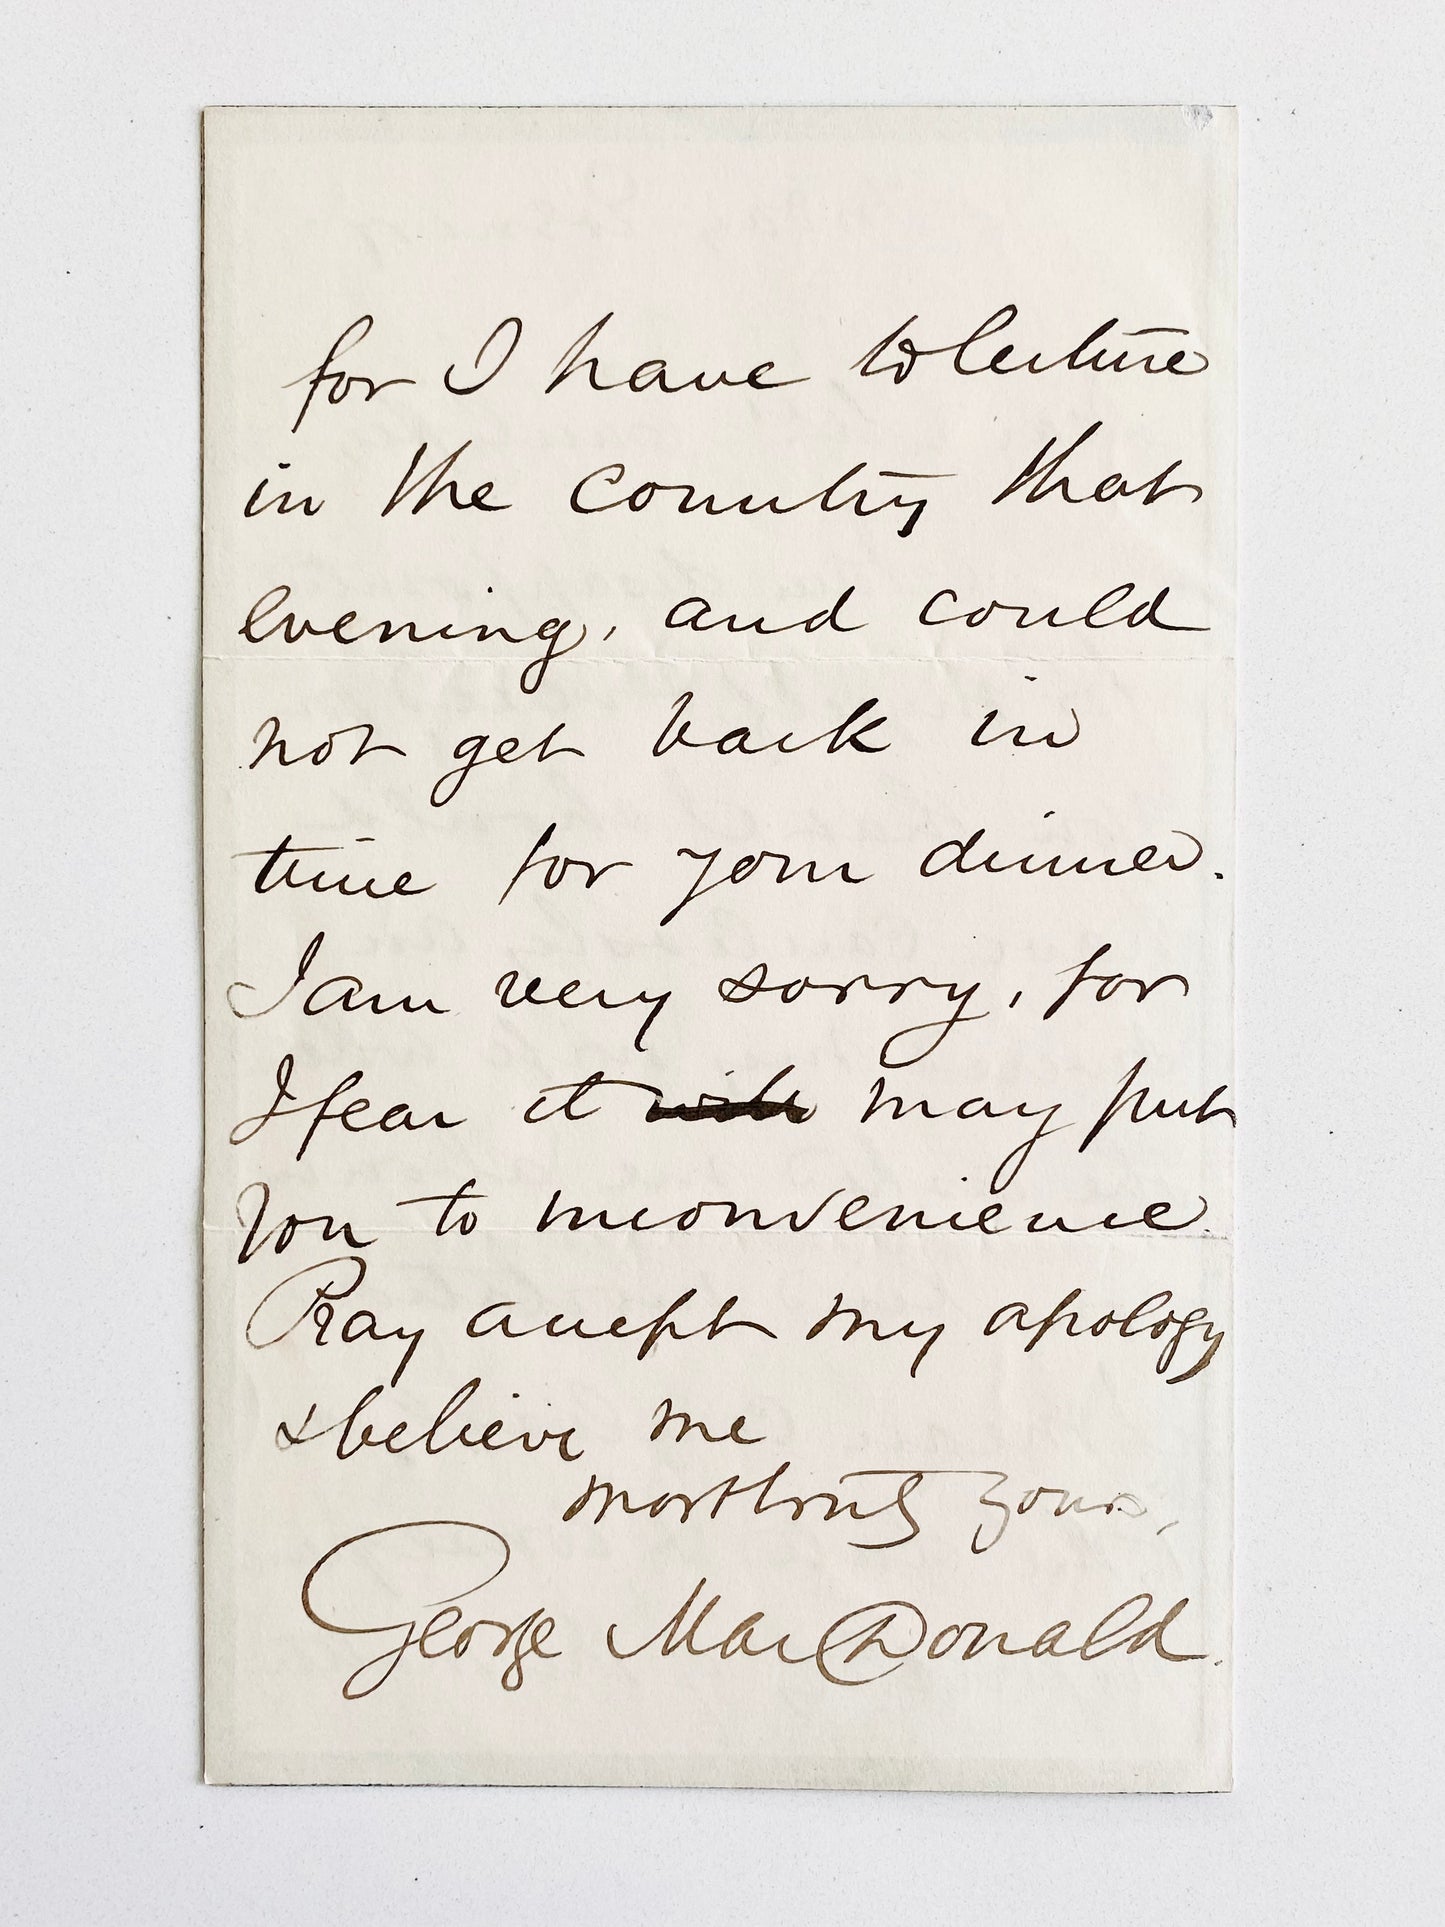 for I have to lecture
in the country that
evening, and could
not get back in
time for your dinner.
I am very sorry, for
I fear it will may put
you to inconvenience.
Pray accept my apology
& believe me
most truly yours,
George MacDonald.